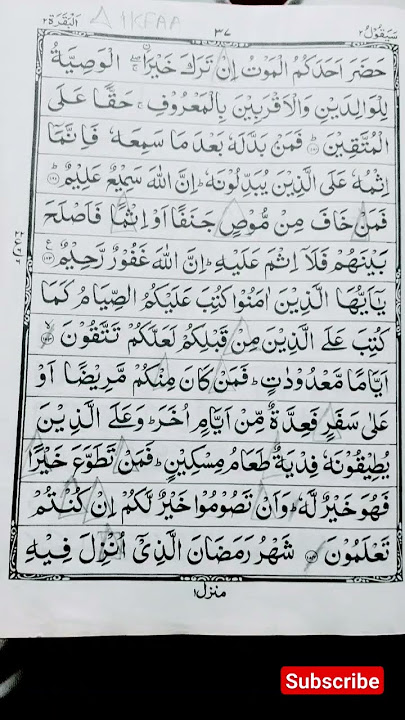 سَيَقُوْلُ ٢ ٣٧ اَلْبَقَرَة ٢ IKFAA
حَضَرَ اَحَدَكُمُ الْمَوْتُ اِنْ تَرَكَ خَيْرَا ۖۚ الْوَصِيَّةُ
لِلْوَالِدَيْنِ وَالْاَقْرَبِيْنَ بِالْمَعْرُوْفِ ۚ حَقًّا عَلَى
الْمُتَّقِيْنَ ؕ۝ فَمَنْۢ بَدَّلَهٗ بَعْدَ مَا سَمِعَهٗ فَاِنَّمَاۤ
اِثْمُهٗ عَلَى الَّذِيْنَ يُبَدِّلُوْنَهٗ ؕ اِنَّ اللّٰهَ سَمِيْعٌ عَلِيْمٌ ؕ۝
فَمَنْ خَافَ مِنْ مُّوْصٍ جَنَفًا اَوْ اِثْمًا فَاَصْلَحَ
بَيْنَهُمْ فَلَاۤ اِثْمَ عَلَيْهِ ؕ اِنَّ اللّٰهَ غَفُوْرٌ رَّحِيْمٌ ۝
يٰۤاَيُّهَا الَّذِيْنَ اٰمَنُوْا كُتِبَ عَلَيْكُمُ الصِّيَامُ كَمَا
كُتِبَ عَلَى الَّذِيْنَ مِنْ قَبْلِكُمْ لَعَلَّكُمْ تَتَّقُوْنَ ۙ۝
اَيَّامًا مَّعْدُوْدٰتٍ ؕ فَمَنْ كَانَ مِنْكُمْ مَّرِيْضًا اَوْ
عَلٰى سَفَرٍ فَعِدَّةٌ مِّنْ اَيَّامٍ اُخَرَ ؕ وَعَلَى الَّذِيْنَ
يُطِيْقُوْنَهٗ فِدْيَةٌ طَعَامُ مِسْكِيْنٍ ؕ فَمَنْ تَطَوَّعَ خَيْرًا
فَهُوَ خَيْرٌ لَّهٗ ؕ وَاَنْ تَصُوْمُوْا خَيْرٌ لَّكُمْ اِنْ كُنْتُمْ
تَعْلَمُوْنَ ۝ شَهْرُ رَمَضَانَ الَّذِيْۤ اُنْزِلَ فِيْهِ
منزل ١
Subscribe